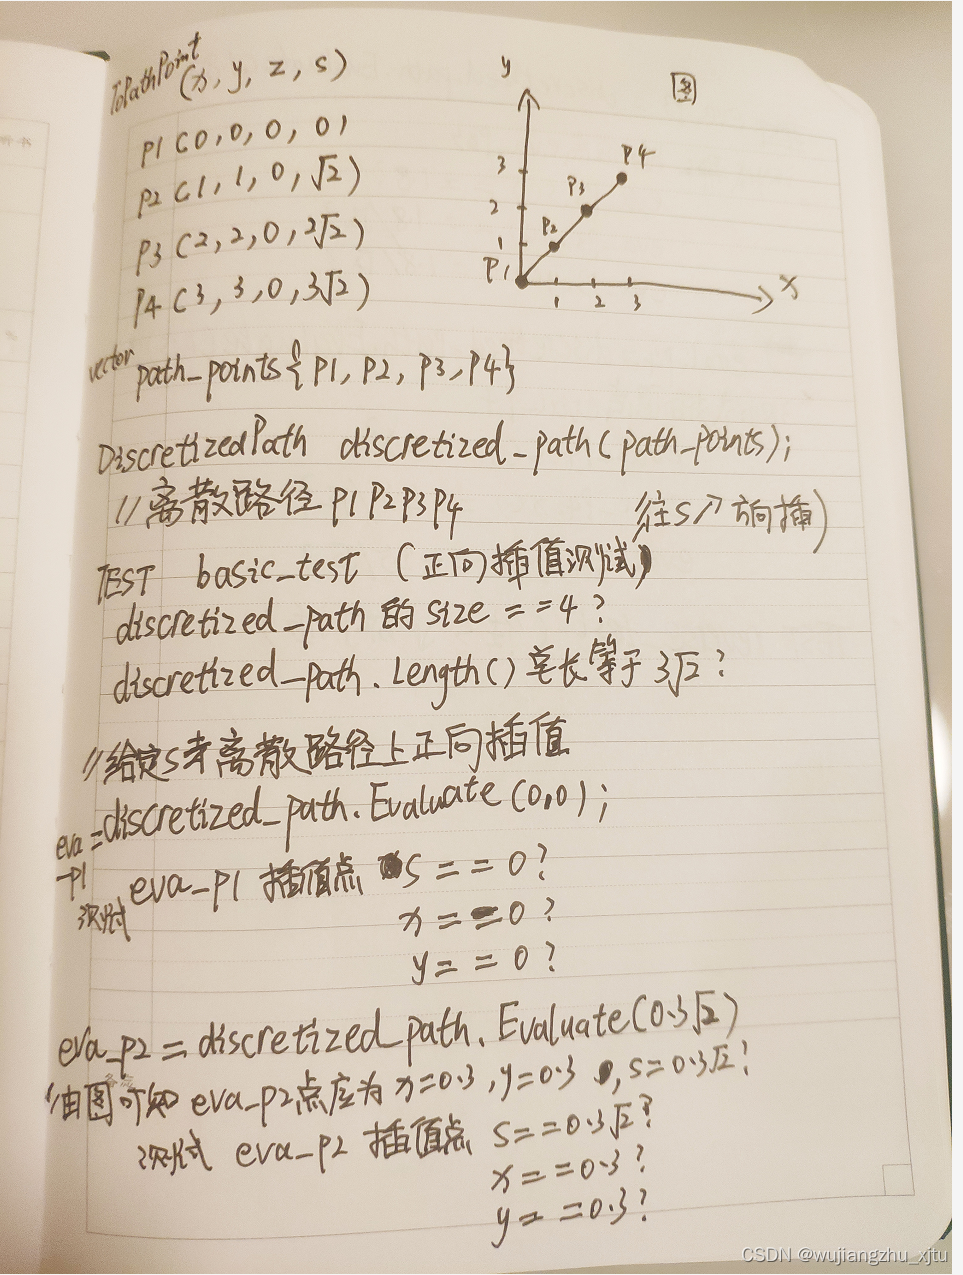 ToPathPoint
(x, y, z, s)
P1 (0, 0, 0, 0)
P2 (1, 1, 0, √2)
P3 (2, 2, 0, 2√2)
P4 (3, 3, 0, 3√2)
y
图
3
2
1
P4
P3
P2
P1
1 2 3
x
vector path_points{P1, P2, P3, P4}
DiscretizedPath discretized_path(path_points);
//离散路径P1P2P3P4
(往S↗方向插)
TEST basic_test (正向插值测试)
discretized_path的size ==4?
discretized_path.Length()等于3√2?
//给定S 离散路径上正向插值
eva_p1=discretized_path.Evaluate(0,0);
测试 eva_p1 插值点 S==0?
x==0?
y==0?
eva_p2=discretized_path.Evaluate(0.3√2)
//由图可知eva_p2点应为x=0.3,y=0.3,s=0.3√2?
测试 eva_p2 插值点 S==0.3√2?
x==0.3?
y==0.3?
CSDN @wujiangzhu_xjtu